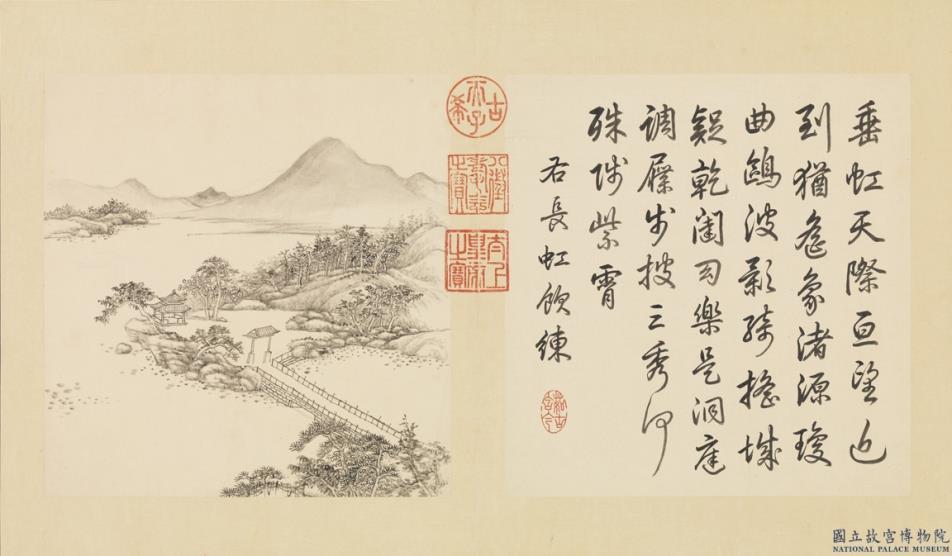 垂虹天際亘望近
到猶遙象渚源瓊
曲鷗波影綺搖城
疑乾闥幻樂是洞庭
調屧步披三秀何
殊陟紫霄
右長虹飲練
古希天子
八徵耄念之寶
太上皇帝之寶
國立故宮博物院
NATIONAL PALACE MUSEUM